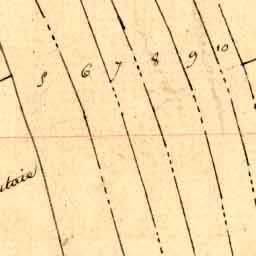 5 6 7 8 9 10